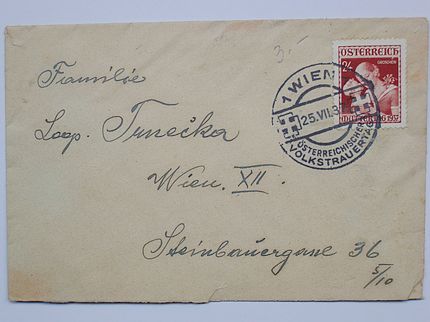 3.-
ÖSTERREICH
GROSCHEN
24
1 WIEN 1
25.VII.3
ÖSTERREICHISCHER
VOLKSTRAUERTAG
Familie
Leop. Trnečka
Wien. XII.
Steinbauergasse 36
5/10